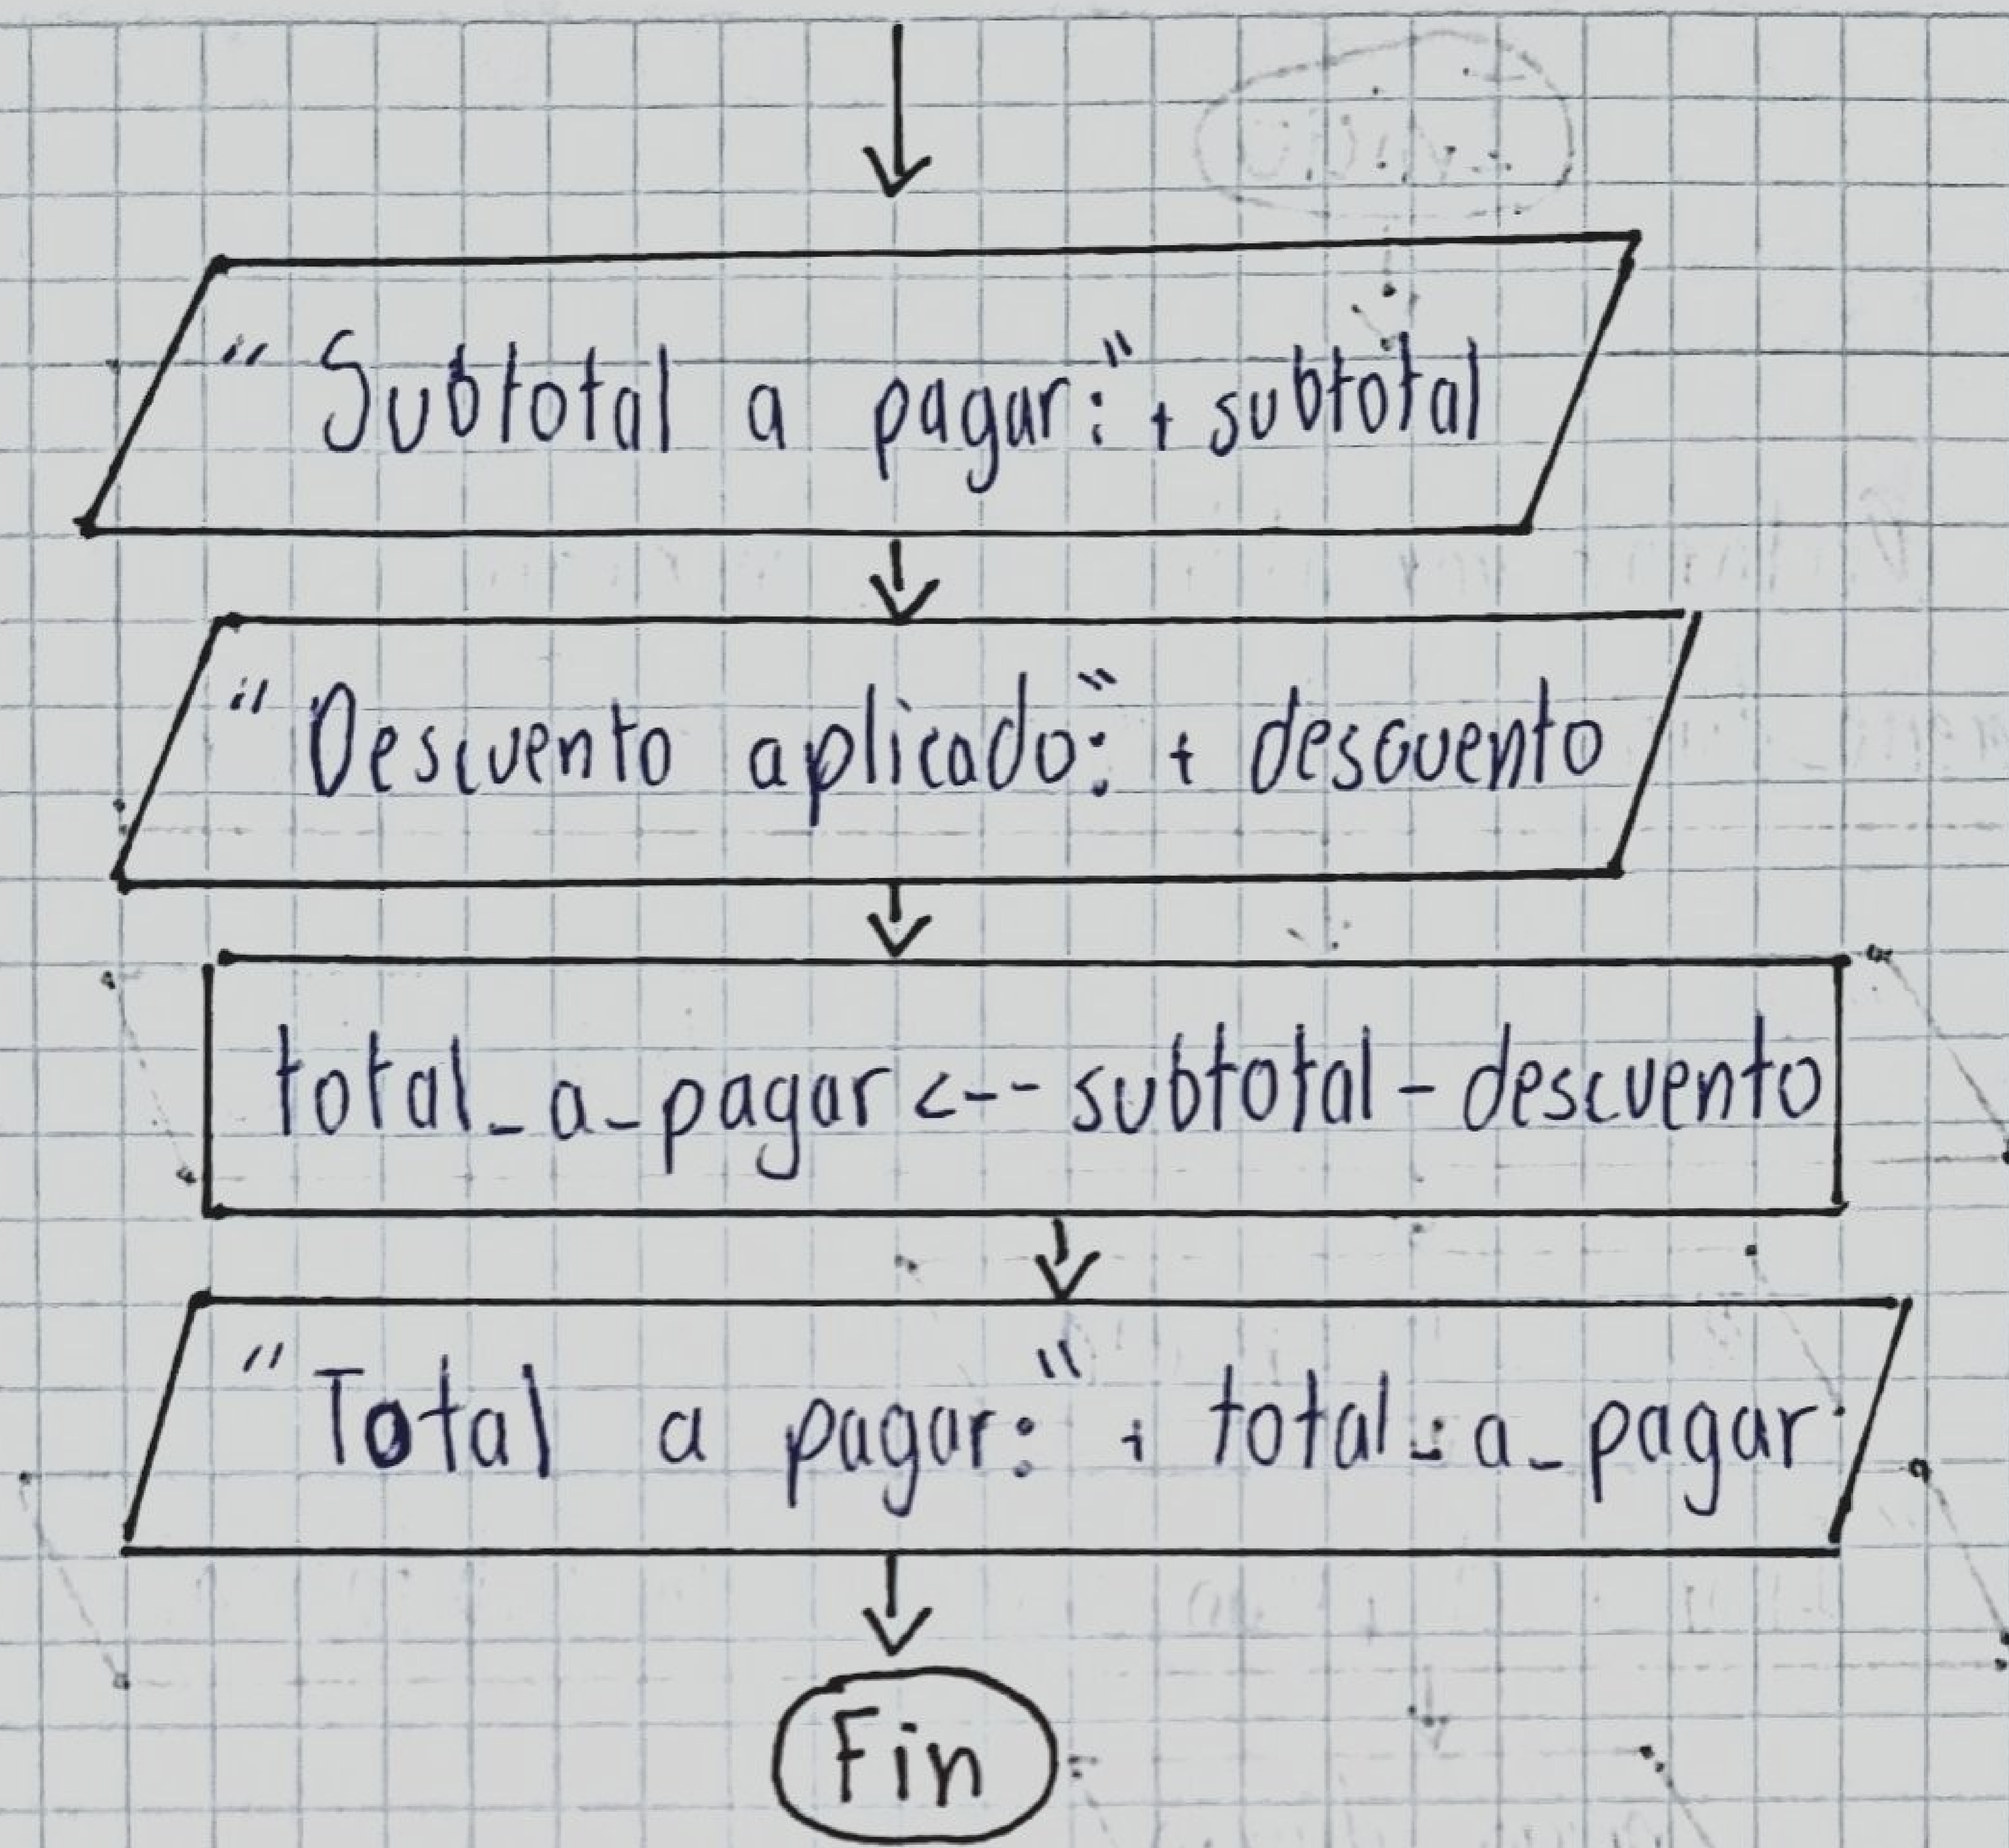 "Subtotal a pagar:" + subtotal
"Descuento aplicado:" + descuento
total_a_pagar <-- subtotal - descuento
"Total a pagar:" + total_a_pagar
Fin